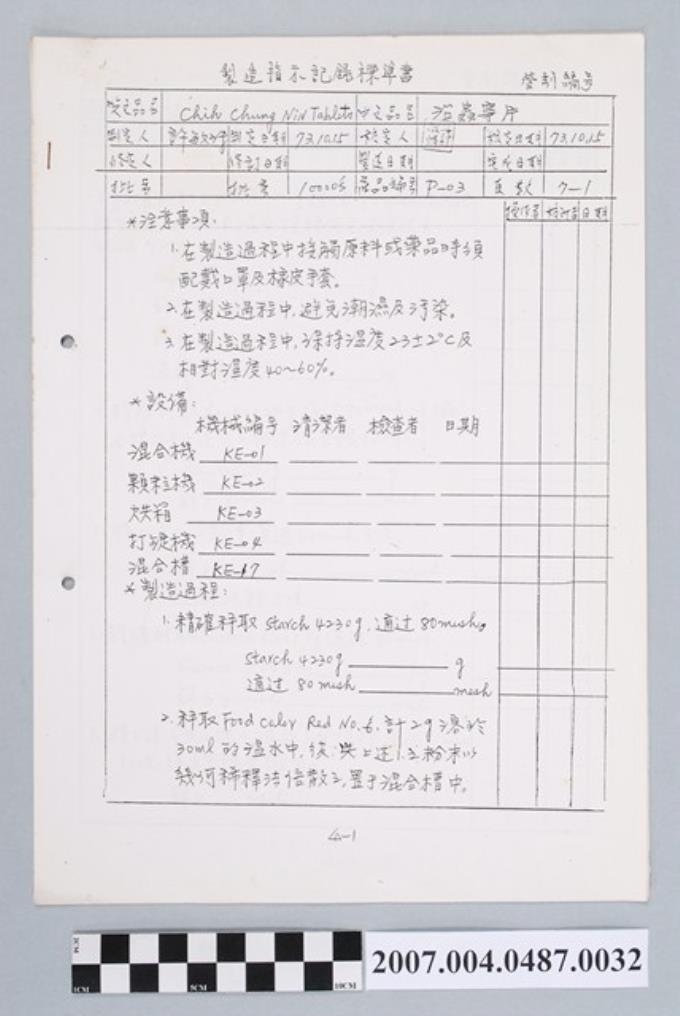 製造指示記錄標準書
管制編號
英文品名 Chih Chung Nin Tablets 中文品名 治蟲寧片
制定人 制定日期 73.10.15 核定人 核定日期 73.10.15
修定人 修訂日期 製造日期 完成日期
批號 批量 10000s 產品編號 P-03 頁數 7-1
操作者 核對者 日期
*注意事項:
1.在製造過程中接觸原料或藥品時須
配戴口罩及橡皮手套。
2.在製造過程中,避免潮濕及污染。
3.在製造過程中,保持溫度23±2°C及
相對濕度40~60%。
*設備:
機械編號 清潔者 檢查者 日期
混合機 KE-01
顆粒機 KE-02
烘箱 KE-03
打錠機 KE-04
混合槽 KE-17
*製造過程:
1.精確秤取 starch 4230g,通过 80mesh。
starch 4230g g
通过 80 mesh mesh
2.秤取 Food Color Red No.6,計2g溶於
30ml的溫水中,後 上述1.之粉末以
幾何稀釋法倍散之,置于混合槽中。
4-1
2CM
1CM
5CM
10CM
2007.004.0487.0032